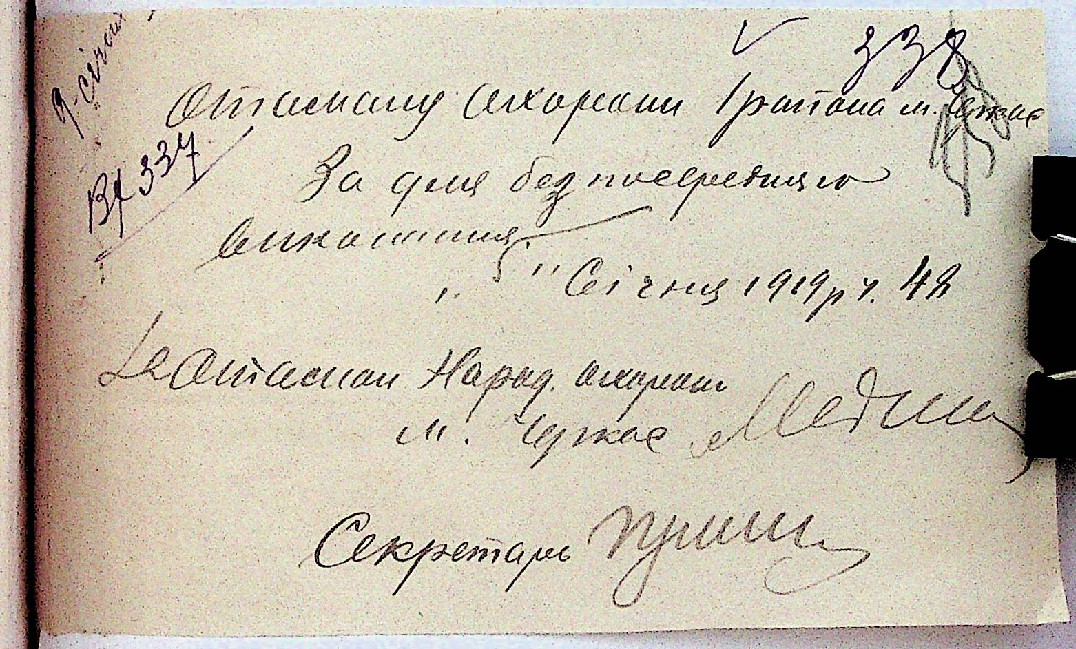 9 січня
Вх 337.
338
Отаману охорони 1 района м. Черкас
За для безпосереднього
виконання.
" " Січня 1919 р ч. 48
За Отаман Народ. охорони
м. Черкас
Секретарь